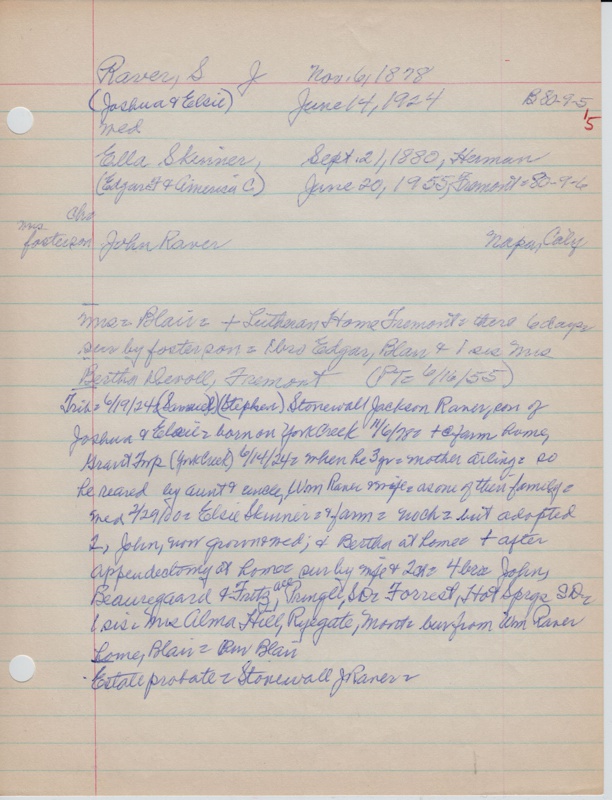 Raver, S J Nov. 6, 1878
(Joshua & Elsie) June 14, 1924 B 80-9-5
med 15
Ella Skinner, Sept. 21, 1880, Herman
(Edgar T & America C) June 20, 1955, Fremont = 80-9-6
chr
Mrs.
foster son John Raver Napa, Caly
Mrs = Blair = + Lutheran Home Fremont = there 6 days =
sur by foster son = 1 bro Edgar, Blair & 1 sis Mrs
Bertha Devoll, Fremont (PT = 6/16/55)
Trib = 6/19/24 (Samuel) (Stephen) Stonewall Jackson Raver, son of
Joshua & Elsie = born on York Creek 11/6/78 = + @ farm home,
Grant Twp (York Creek) 6/14/24 = when he 3 yr = mother ailing = so
he reared by aunt & uncle, Wm Raver & wife = as one of their family =
med 2/29/00 = Elsie Skinner = & farm = no ch = but adopted
2, John, now grown & med; & Bertha at home = + after
appendectomy at home = sur by wife & 2 ch = 4 bro John,
Beauregard & Fritz, all Pringle, SD = Forrest, Hot Sprgs SD =
1 sis = Mrs Alma Hill, Ryegate, Mont = bur from Wm Raver
home, Blair = Bur Blair
Estate probate = Stonewall J Raver =